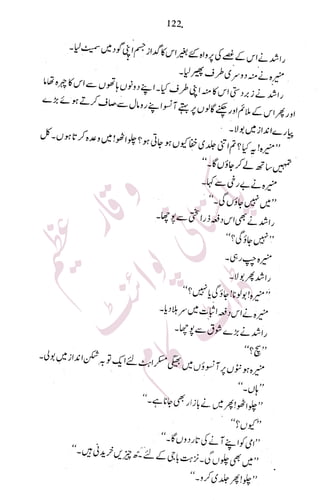 122.
راشد نے اس کے غصے کی پرواہ کئے بغیر اس کا گداز جسم اپنی گود میں سمیٹ لیا۔
منیرہ نے منہ دوسری طرف پھیر لیا۔
راشد نے زبردستی اس کا منہ اپنی طرف کیا۔ اپنے دونوں ہاتھوں سے اس کا چہرہ تھاما
اور پھر اس کے ملائم اور چکنے گالوں پر بہتے آنسو اپنے رومال سے صاف کرتے ہوئے بڑے
پیارے انداز میں بولا۔
”منیرہ! یہ کیا؟ تم اتنی جلدی خفا کیوں ہو جاتی ہو؟ چلو اٹھو! میں وعدہ کرتا ہوں۔ کل
تمہیں ساتھ لے کر جاؤں گا۔“
منیرہ نے بے رخی سے کہا۔
”میں نہیں جاؤں گی۔“
راشد نے بھی اس دفعہ ذرا سختی سے پوچھا۔
”نہیں جاؤ گی؟“
منیرہ چپ رہی۔
راشد پھر بولا۔
”منیرہ! بولو نا! جاؤ گی یا نہیں؟“
منیرہ نے اس دفعہ اثبات میں سر ہلا دیا۔
راشد نے بڑے شوق سے پوچھا۔
”سچ؟“
منیرہ ہونٹوں پر آنسوؤں میں بھیگی مسکراہٹ لئے ایک توبہ شکن انداز میں بولی۔
”ہاں۔“
”چلو اٹھو! پھر میں نے بازار بھی جانا ہے۔“
”کیوں؟“
”امی کو اپنے آنے کی تار دوں گا۔“
”میں بھی چلوں گی۔ نزہت باجی کے لئے کچھ چیزیں خریدنی ہیں۔“
”چلو! پھر جلدی کرو۔“
وقار عظیم
پاکستانی پوائنٹ
ڈاٹ کام